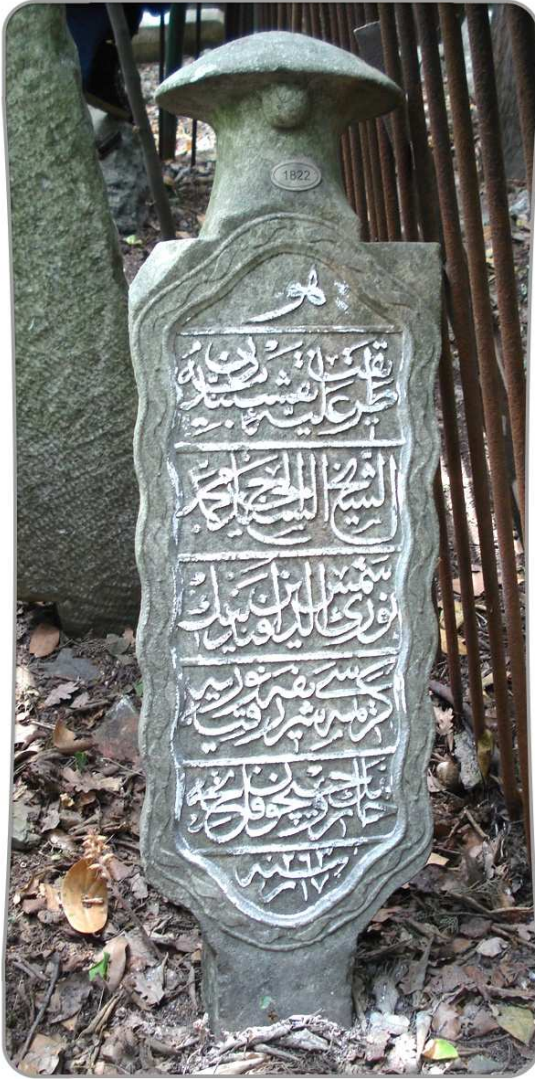 1822
هو
طريقت علية نقشبنديه دن
الشيخ السيد الحاج محمد
نورى شمس الدين افندينك
كريمه سى شريفه نوريه
خانمك روحيچون فاتحه
سنه
١٧ ر